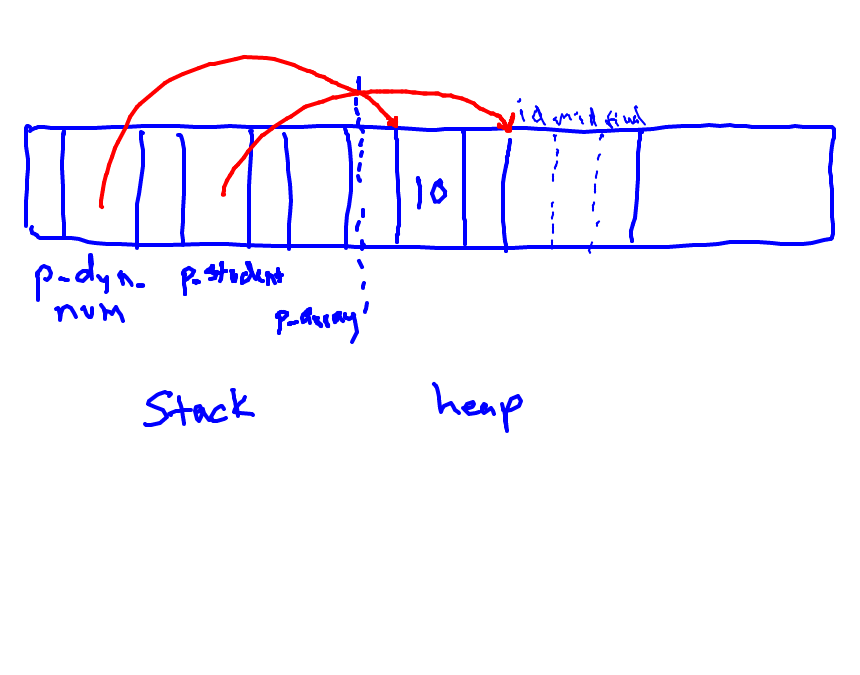 id mid final
10
p_dyn_ p_student
num
p_array
Stack heap